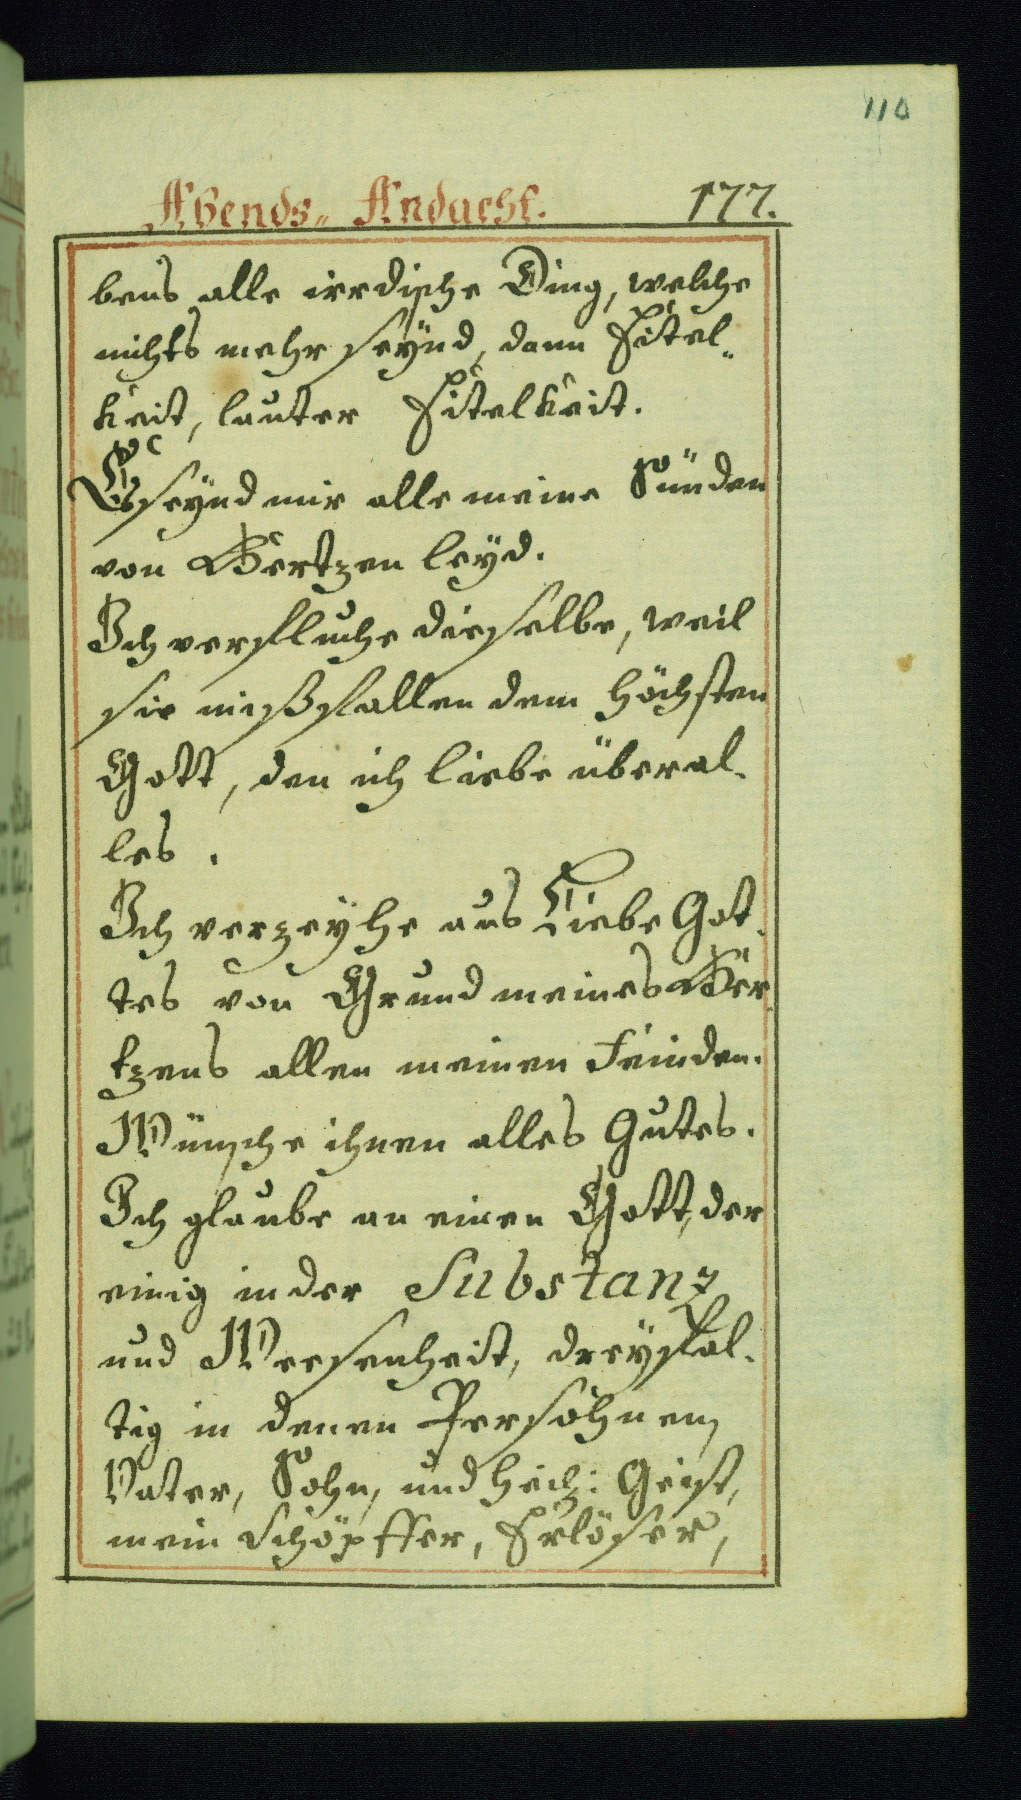 110
Abends„ Andacht. 177.
bens alle irrdische Ding, welche
nichts mehr seÿnd, dann Eitel„
keit, lauter Eitelkeit.
Es seÿnd mir alle meine Sünden
von Hertzen leÿd.
Ich verfluche dieselbe, weil
sie mißfallen dem höchsten
Gott, den ich liebe über al-
les.
Ich verzeÿhe aus Liebe Got-
tes von Grund meines Her-
tzens allen meinen Feinden.
Wünsche ihnen alles Gutes.
Ich glaube an einen Gott, der
einig in der Substanz
und Weesenheit, dreÿfal-
tig in denen Persohnen,
Vater, Sohn, und heil: Geist,
mein Schöpffer, Erlöser,